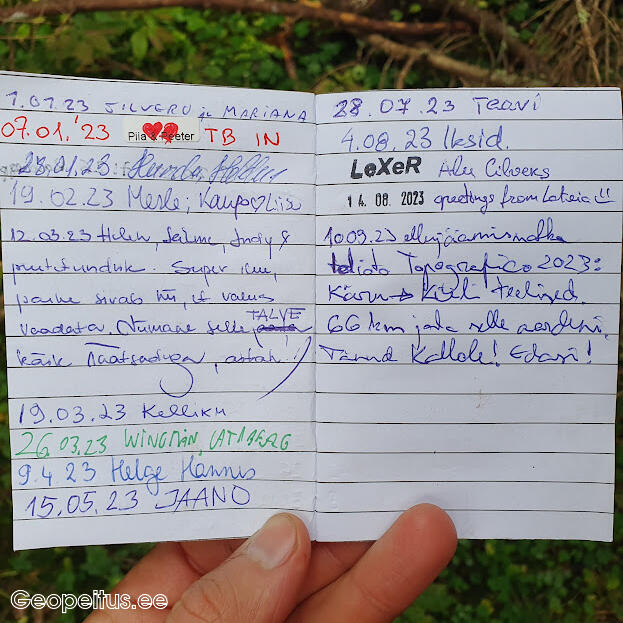 1.01.23 SILVERU ja MARIANA
07.01.'23 Piia & Peeter TB IN
28.01.23
19.02.23 Merle; Kaupo Liis
12.03.23 Helen, Indy &
Super ilm,
paike sirab nii, et valus
vaadata. Viimane selle TALVE
käik Räätsadega, aitäh!
19.03.23 Kelliku
26.03.23 WINGMAN, CATABERG
9.4 23 Helge Hannes
15.05.23 JAANO
28.07.23 Teavi
4.08.23 Iksid.
LeXeR Alu Cilvers
14.08.2023 greetings from Latvia
10.09.23
Topografico 2023:
Käru → teelised.
66 km jala selle aardeni.
Tänud Kallole! Edasi!
Geopeitus.ee